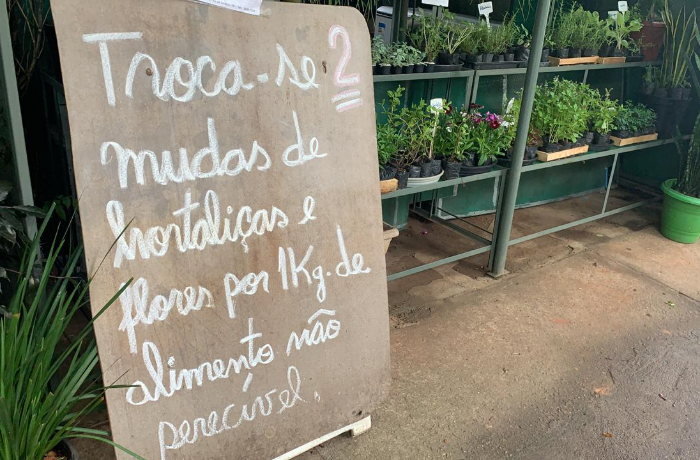 Troca-se 2
mudas de
hortaliças e
flores por 1Kg. de
alimento não
perecível.